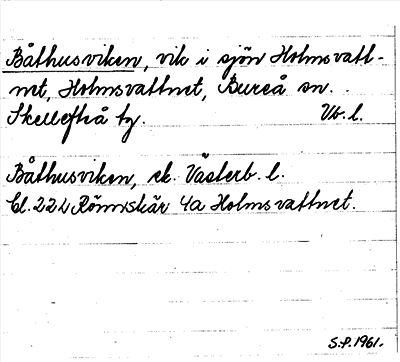 Båthusviken, vik i sjön Holmsvatt-
net, Holmsvattnet, Bureå sn.
Skellefteå ty. Vb. l.
Båthusviken, ek. Västerb. l.
Bl. 22 L Rönnskär 4a Holmsvattnet.
S.P. 1961.